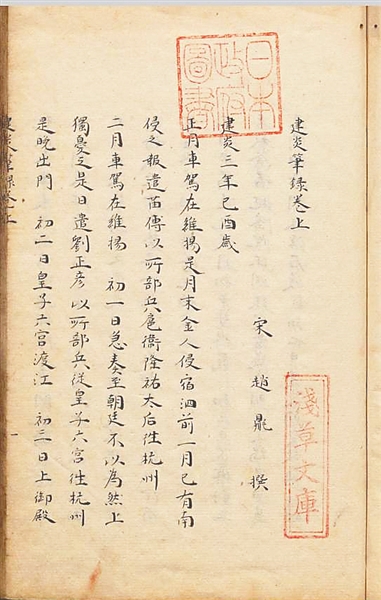 建炎筆録卷上
宋趙鼎撰
建炎三年己酉歲
正月車駕在維揚是月末金人侵宿泗前一月已有南
侵之報遣苗傅以所部兵扈衞隆祐太后徃杭州
二月車駕在維揚 初一日急奏至朝廷不以為然上
獨憂之是日遣劉正彦以所部兵從皇子六宮徃杭州
是晚出門 初二日皇子六宮渡江 初三日上御殿
日本
政府
圖書
淺草文庫